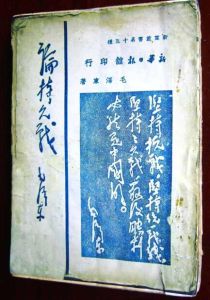 新羣叢書第十五種
新華日報館印行
毛澤東著
論持久戰
毛澤東
堅持抗戰堅持統一戰線
堅持持久戰最後勝利
必然是中國的
毛澤東